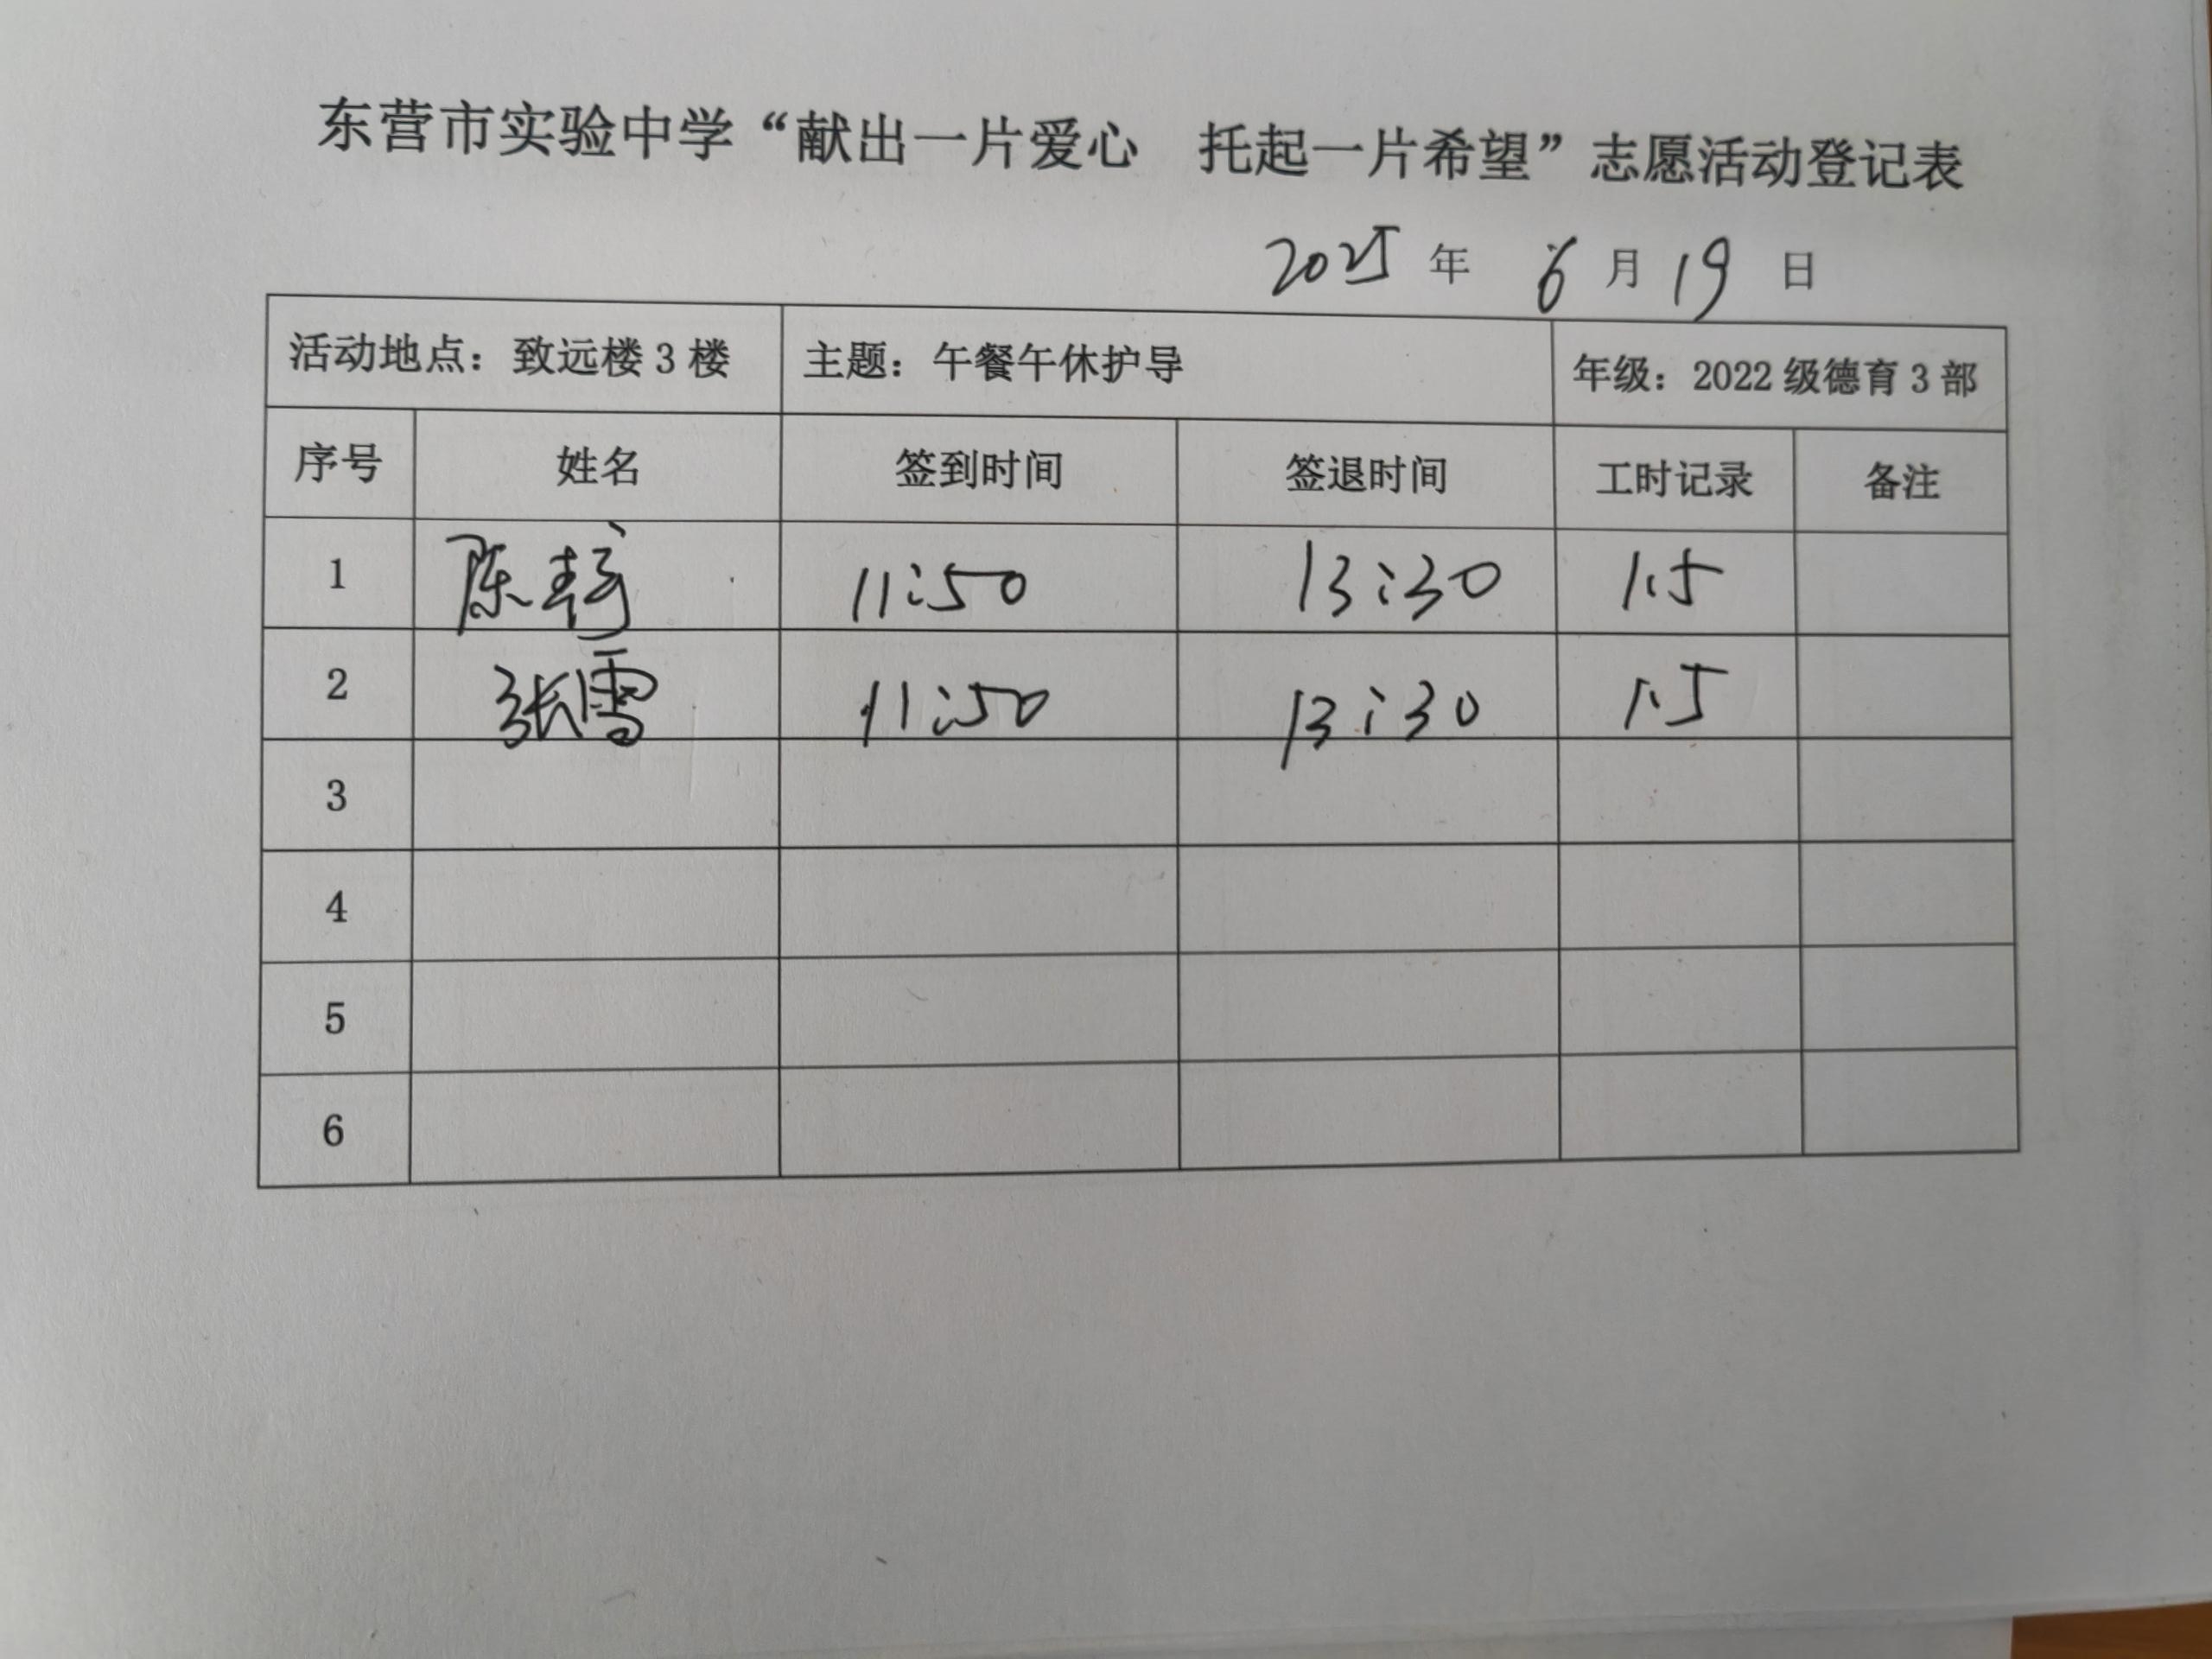 东营市实验中学“献出一片爱心 托起一片希望”志愿活动登记表
2025 年 6 月 19 日
活动地点：致远楼 3 楼 主题：午餐午休护导 年级：2022 级德育 3 部
序号 姓名 签到时间 签退时间 工时记录 备注
1 陈 11:50 13:30 1.5
2 张雪 11:50 13:30 1.5
3
4
5
6